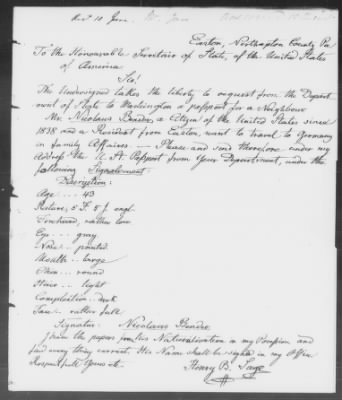 Rec'd 10 June
Easton, Northampton County Pa
To the Honourable Secretair of State, of the United States
of America
Sir!
The Undersigned takes the liberty to request from the Depart
ment of State to Washington a passport for a Neighbour
Mr. Nicolaus Bender, a Citizen of the United States since
1838 and a Resident from Easton, want to travel to Germany
in family Affaires — Please and send therefore under my
address the U. St. Passport from Your Department, under the
following Signalement
Description:
Age ... 43
Stature, 5 F. 5 J. engl.
Forehead, rather low
Eye ... gray
Nose .. pointed
Mouth .. large
Chin ... round
Hair ... light
Complexition .. dark
Face .. rather full
Signatur. Nicolaus Bender
I have the papers from his Naturalisation in my Possession and
find every thing correct. His Name shall be signed in my Office
Respectfull Yours etc.
Henry B.